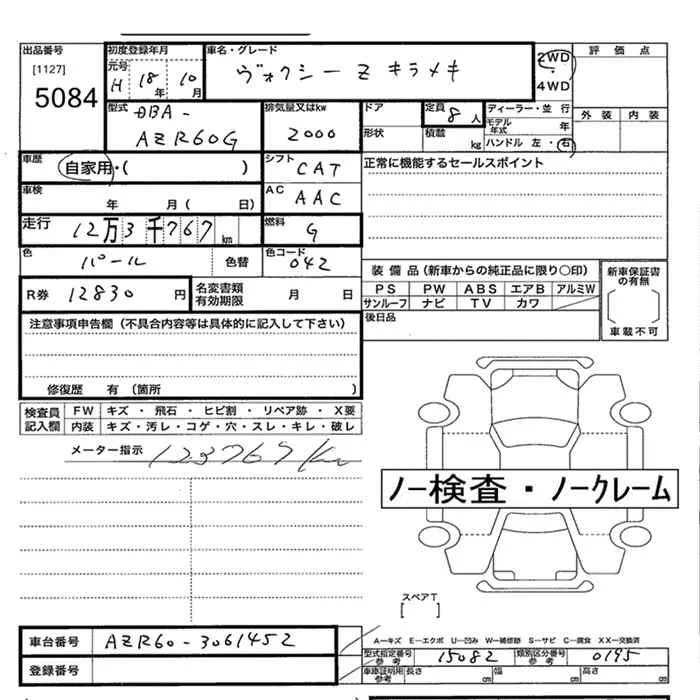 出品番号
[1127]
5084
初度登録年月
元号
H 18年 10月
車名・グレード
ヴォクシー Z キラメキ
2WD
・
4WD
評価点
外装 内装
型式
DBA-
AZR60G
排気量又はkw
2000
ドア
形状
定員
8人
積載
kg
ディーラー・並行
モデル年式
年
ハンドル 左・右
車歴
自家用・( )
シフト
CAT
正常に機能するセールスポイント
車検
年 月( 日)
AC
AAC
走行
12万3千767km
燃料
G
色
パール
色替
色コード
042
R券
12830円
名変書類
有効期限
月 日
装備品(新車からの純正品に限り○印)
PS PW ABS エアB アルミW
サンルーフ ナビ TV カワ
新車保証書
の有無
車載不可
後日品
注意事項申告欄(不具合内容等は具体的に記入して下さい)
修復歴 有(箇所 )
検査員
記入欄
FW キズ・飛石・ヒビ割・リペア跡・X要
内装 キズ・汚レ・コゲ・穴・スレ・キレ・破レ
メーター指示
123767km
ノー検査・ノークレーム
スペアT
[ ]
A-キズ E-エクボ U-凹み W-補修跡 S-サビ C-腐食 XX-交換済
車台番号
AZR60-3061452
登録番号
型式指定番号
参考
15082
類別区分番号
参考
0195
車庫証明用
参考
長さ cm 幅 cm 高さ cm